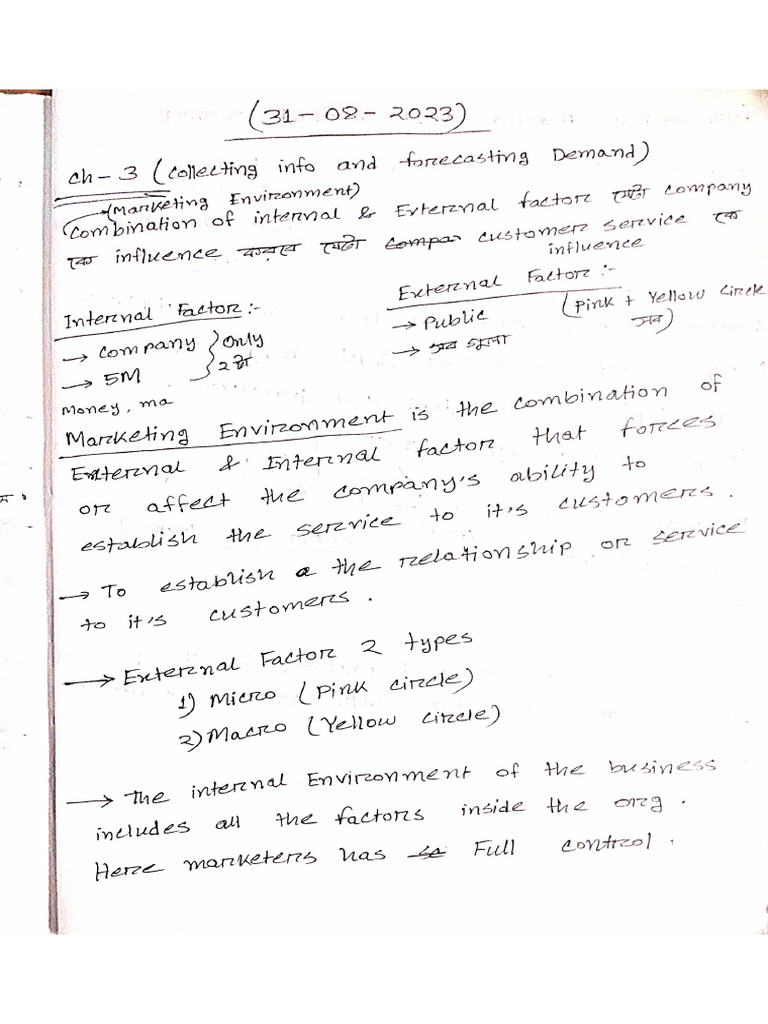 (31-08-2023)
ch-3 (collecting info and forecasting Demand)
(Marketing Environment)
Combination of internal & External factor যেটা company
কে influence করবে যেটা compar customer service কে
influence
Internal Factor:-
→ company
→ 5M
Only
2টা
Money, ma
External Factor:-
→ Public
→ সব গুলা
(Pink + Yellow Circle
সব)
Marketing Environment is the combination of
External & Internal factor that forces
or affect the company's ability to
establish the service to it's customers.
→ To establish a the relationship or service
to it's customers.
→ External Factor 2 types
1) Micro (Pink circle)
2) Macro (Yellow circle)
→ The internal Environment of the business
includes all the factors inside the org.
Here marketers has Full control.